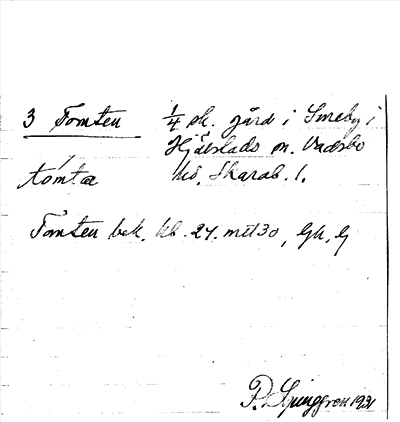 3 Tomten ¼ sk. gård i Smeby i
Hjälstads sn. Vadsbo
tómta hd. Skarab. l.
Tomten bek. kl. 24. mtl 30, Gk, G
P. Ljunggren 1931